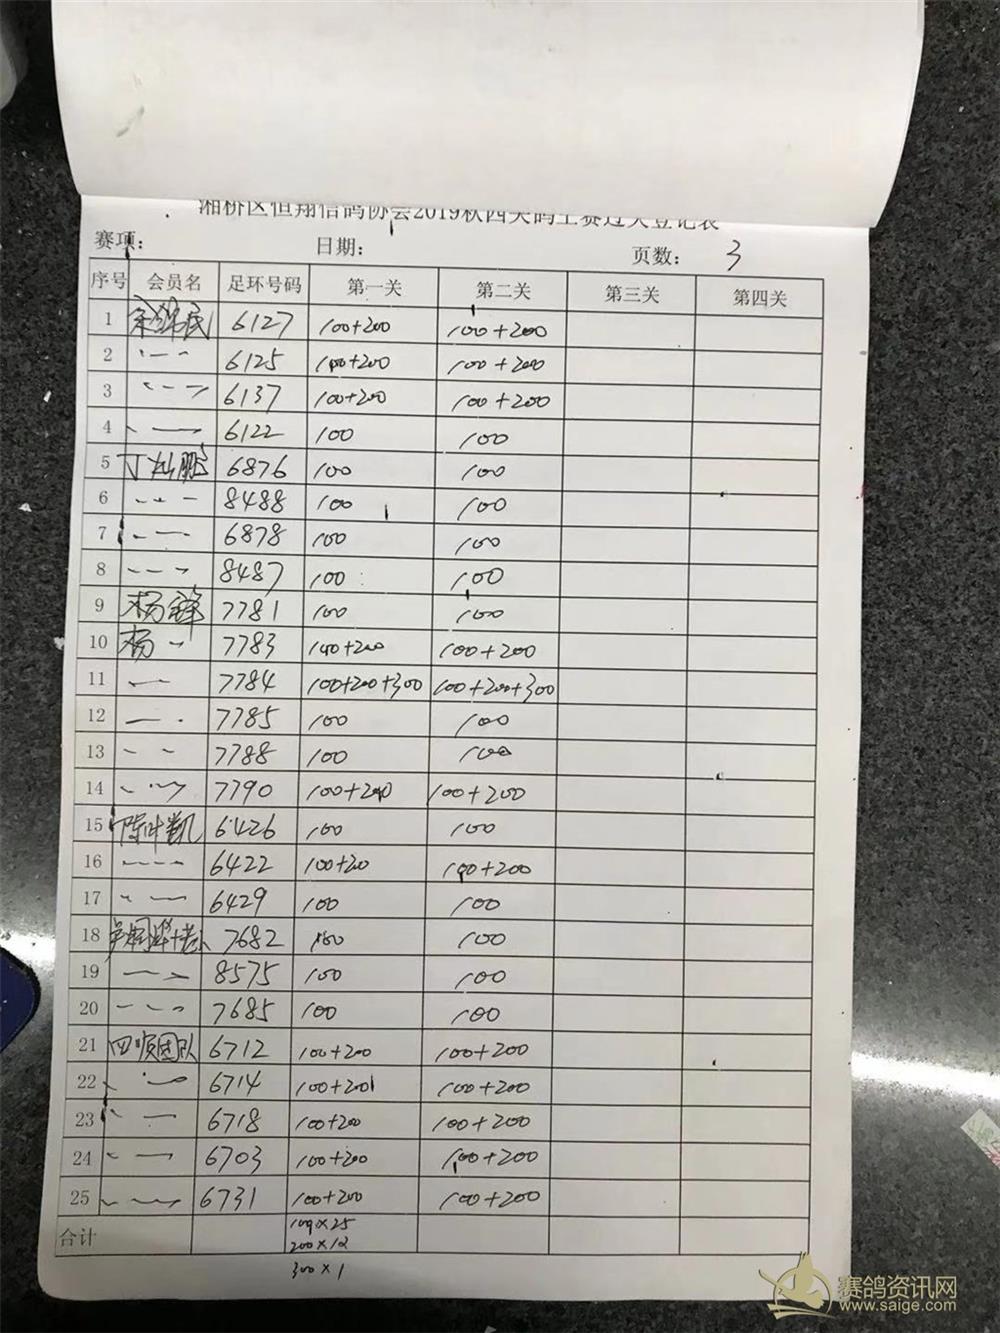 湘桥区恒翔信鸽协会2019秋四关鸽王赛过关登记表
赛项: 日期: 页数: 3
序号 会员名 足环号码 第一关 第二关 第三关 第四关
1 6127 100+200 100+200
2 〃 6125 100+200 100+200
3 〃 6137 100+200 100+200
4 〃 6122 100 100
5 丁灿鹏 6876 100 100
6 〃 8488 100 100
7 〃 6878 100 100
8 〃 8487 100 100
9 杨锋 7781 100 100
10 杨 〃 7783 100+200 100+200
11 〃 7784 100+200+300 100+200+300
12 〃 7785 100 100
13 〃 7788 100 100
14 〃 7790 100+200 100+200
15 陈叶凯 6426 100 100
16 〃 6422 100+200 100+200
17 〃 6429 100 100
18 7682 100 100
19 〃 8575 100 100
20 〃 7685 100 100
21 四顺团队 6712 100+200 100+200
22 〃 6714 100+200 100+200
23 〃 6718 100+200 100+200
24 〃 6703 100+200 100+200
25 〃 6731 100+200 100+200
合计 100×25
200×12
300×1
赛鸽资讯网
www.saige.com